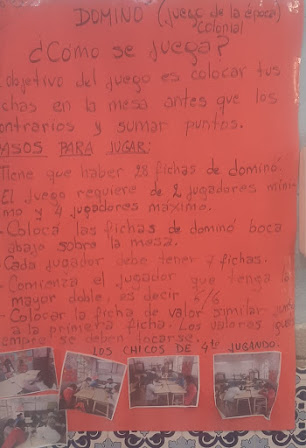 DOMINO (juego de la época
colonial
¿Cómo se juega?
objetivo del juego es colocar tus
chas en la mesa antes que los
ontrarios y sumar puntos.
PASOS PARA JUGAR:
Tiene que haber 28 fichas de dominó.
El juego requiere de 2 jugadores míni
mo y 4 jugadores máximo.
- Colocá las fichas de dominó boca
abajo sobre la mesa.
- Cada jugador debe tener 7 fichas.
- Comienza el jugador que tenga la
mayor doble, es decir 6/6
- Colocar la ficha de valor similar junto
a la primera ficha. Los valores
siempre se deben tocarse.
LOS CHICOS DE 4to JUGANDO.